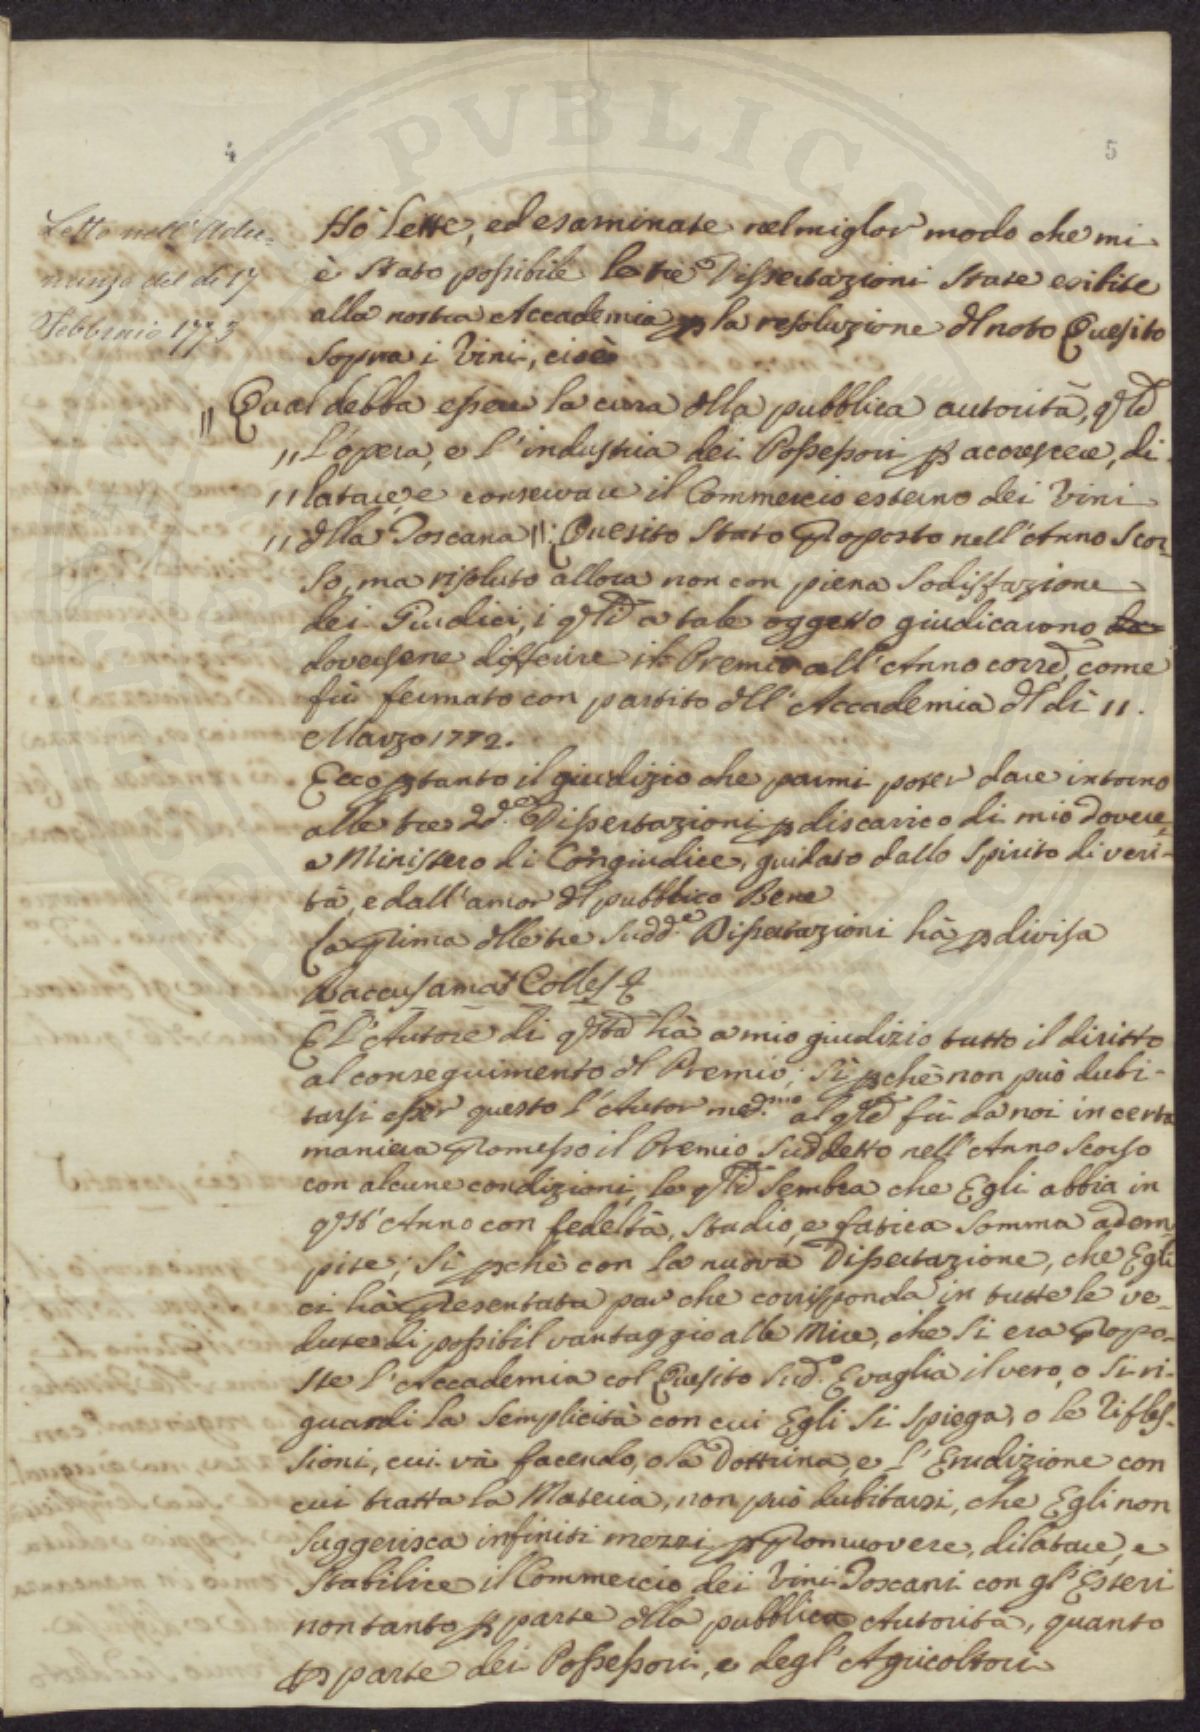 4
5
Letto nell'Adu-
nanza del dì 17
Febbraio 1773
Hò lette, ed esaminate nel miglior modo che mi
è stato possibile le tre Dissertazioni state esibite
alla nostra Accademia p la resoluzione dl noto Quesito
sopra i Vini, cioè
" Qual debba essere la cura dlla pubblica autorità, qle
" l'opera, e l'industria dei Possessori p accrescere, di
" latare, e conservare il Commercio esterno dei Vini
" dlla Toscana ": Quesito stato proposto nell'Anno scor-
so, ma risoluto allora non con piena sodisfazione
dei Giudici, i qli a tale oggetto giudicarono
doversene differire il Premio all'Anno corre, come
fù fermato con partito dll'Accademia dl dì 11.
Marzo 1772.
Ecco ptanto il giudizio che parmi poter dare intorno
alle tre dd.e Dissertazioni p discarico di mio dovere,
e Ministero di Congiudice, guidato dallo spirito di veri-
tà, e dall'amor dl pubblico Bene
La prima dlle tre sudd.e Dissertazioni hà p divisa
Baccus amat Colles
E l'Autore di qsta hà a mio giudizio tutto il diritto
al conseguimento dl Premio; sì pchè non può dubi-
tarsi esser questo l'Autor med.mo al qle fù da noi in certa
maniera promesso il Premio suddetto nell'Anno scorso
con alcune condizioni, le qli sembra che Egli abbia in
qst'Anno con fedeltà, studio, e fatica somma adem
pite; sì pchè con la nuova Dissertazione, che Egli
ci hà presentata par che corrisponda in tutte le ve-
dute di possibil vantaggio alle mire, che si era propo-
ste l'Accademia col Quesito sud.o E vaglia il vero, o si ri-
guardi la semplicità con cui Egli si spiega, o le rifles-
sioni, cui và facendo, o la Dottrina, e l'Erudizione con
cui tratta la Materia, non può dubitarsi, che Egli non
suggerisca infiniti mezzi p promuovere, dilatare, e
stabilire il Commercio dei Vini Toscani con gl'Esteri
non tanto p parte dlla pubblica Autorità, quanto
p parte dei Possessori, e degl'Agricoltori
PVBLICA